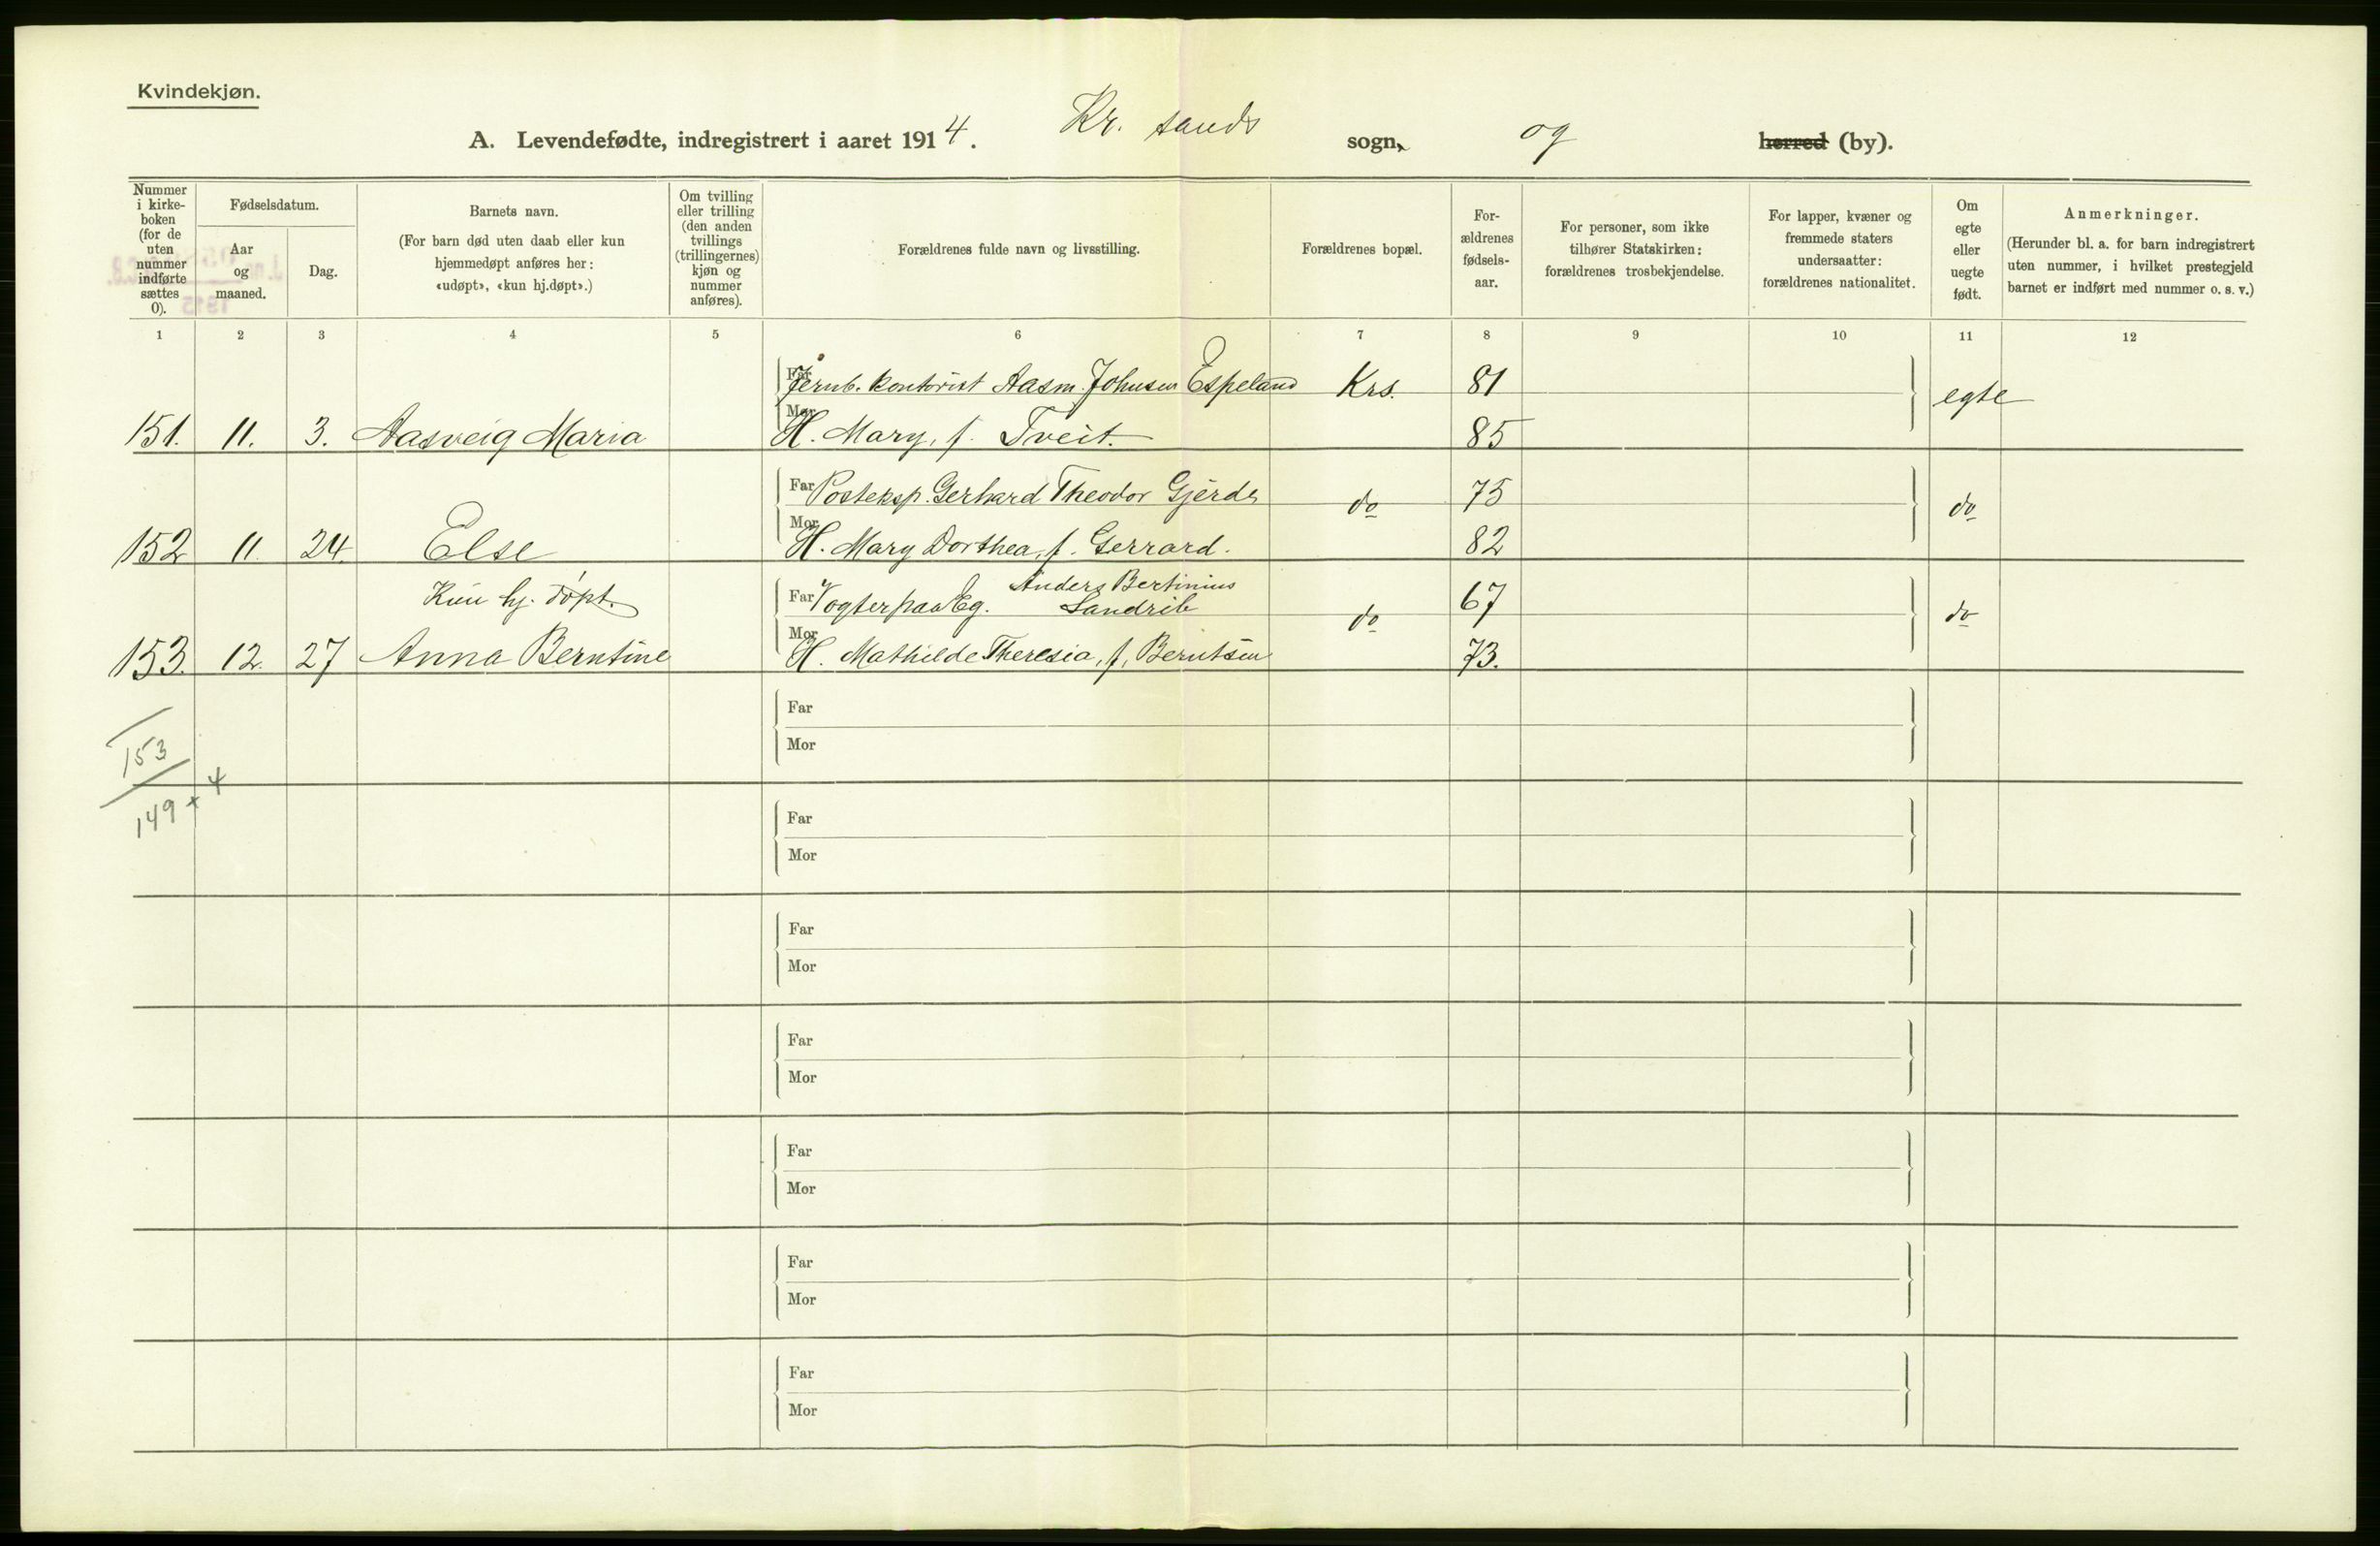 Kvindekjøn.
A. Levendefødte, indregistrert i aaret 1914. Kr. sands sogn, og herred (by).
Nummer i kirke-
boken
(for de
uten
nummer
indførte
sættes
0).
Fødselsdatum.
Aar
og
maaned.
Dag.
Barnets navn.
(For barn død uten daab eller kun
hjemmedøpt anføres her:
«udøpt», «kun hj.døpt».)
Om tvilling
eller trilling
(den anden
tvillings
(trillingernes)
kjøn og
nummer
anføres).
Forældrenes fulde navn og livsstilling.
Forældrenes bopæl.
For-
ældrenes
fødsels-
aar.
For personer, som ikke
tilhører Statskirken:
forældrenes trosbekjendelse.
For lapper, kvæner og
fremmede staters
undersaatter:
forældrenes nationalitet.
Om
egte
eller
uegte
født.
Anmerkninger.
(Herunder bl. a. for barn indregistrert
uten nummer, i hvilket prestegjeld
barnet er indført med nummer o. s. v.)
1 2 3 4 5 6 7 8 9 10 11 12
Far Jernb. kontorist Aasm. Johnsen Espeland Krs. 81 egte
151. 11. 3. Aasveig Maria Mor H. Mary, f. Tveit. 85
Far Posteksp. Gerhard Theodor Gjerde do 75 do
152 11. 24. Else Mor H. Mary Dorthea, f. Gerrard. 82
Kun hj. døpt. Far Vogter paa Eg. Anders Bertinius do 67 do
153. 12. 27 Anna Berntine Mor H. Mathilde Theresia, f. Berntsen 73.
Far
153
Mor
149 + 4
Far
Mor
Far
Mor
Far
Mor
Far
Mor
Far
Mor
Far
Mor